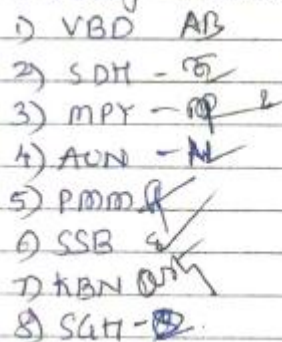 1) VBD AB
2) SDH -
3) MPY -
4) AUN - N
5) PMM
6) SSB
7) KBN
8) SGH -